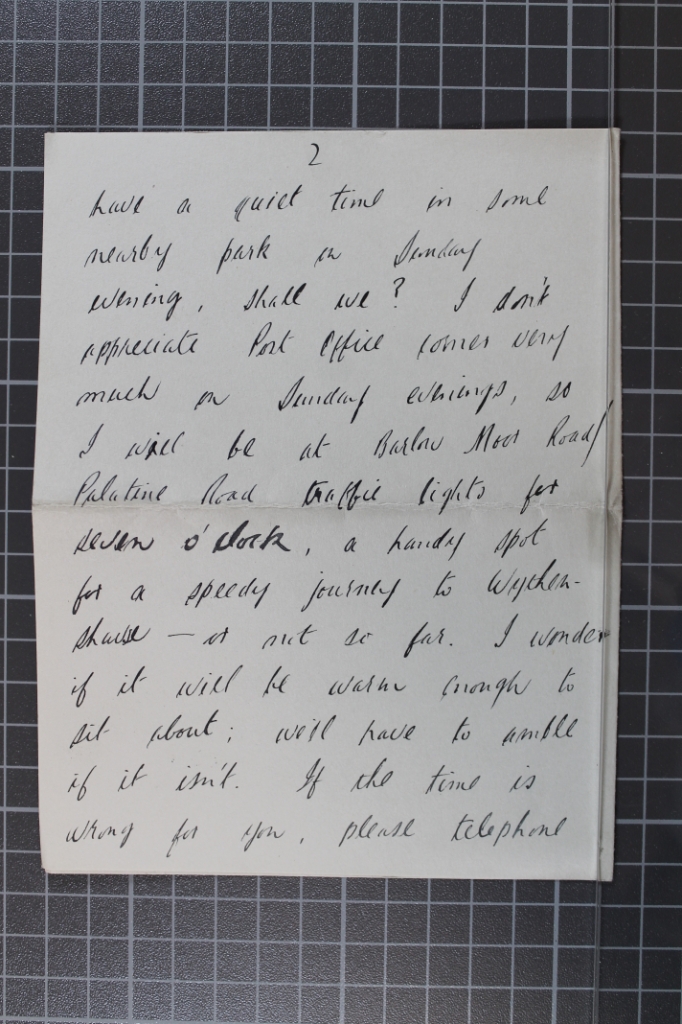 2
have a quiet time in some
nearby park on Sunday
evening, shall we? I don't
appreciate Post Office corner very
much on Sunday evenings, so
I will be at Barlow Moor Road/
Palatine Road traffic lights for
seven o'clock, a handy spot
for a speedy journey to Wythen-
shawe — or not so far. I wonder
if it will be warm enough to
sit about; we'll have to amble
if it isn't. If the time is
wrong for you, please telephone